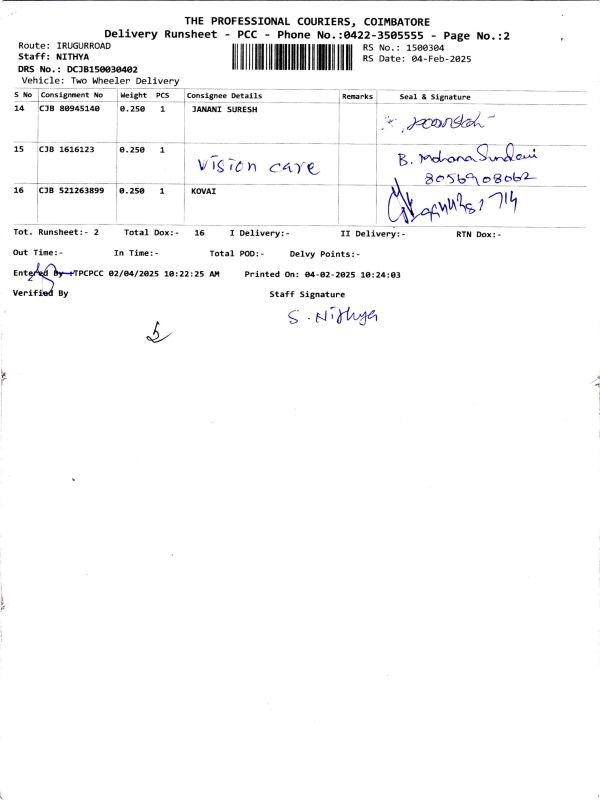 THE PROFESSIONAL COURIERS, COIMBATORE
Delivery Runsheet - PCC - Phone No.:0422-3505555 - Page No.:2
Route: IRUGURROAD
RS No.: 1500304
Staff: NITHYA
RS Date: 04-Feb-2025
DRS No.: DCJB150030402
Vehicle: Two Wheeler Delivery
S No Consignment No Weight PCS Consignee Details Remarks Seal & Signature
14 CJB 80945140 0.250 1 JANANI SURESH
15 CJB 1616123 0.250 1 B. Mohana Sundari
Vision care 8056908062
16 CJB 521263899 0.250 1 KOVAI
Tot. Runsheet:- 2 Total Dox:- 16 I Delivery:- II Delivery:- RTN Dox:-
Out Time:- In Time:- Total POD:- Delvy Points:-
Entered By :TPCPCC 02/04/2025 10:22:25 AM Printed On: 04-02-2025 10:24:03
Verified By Staff Signature
S. Nithya